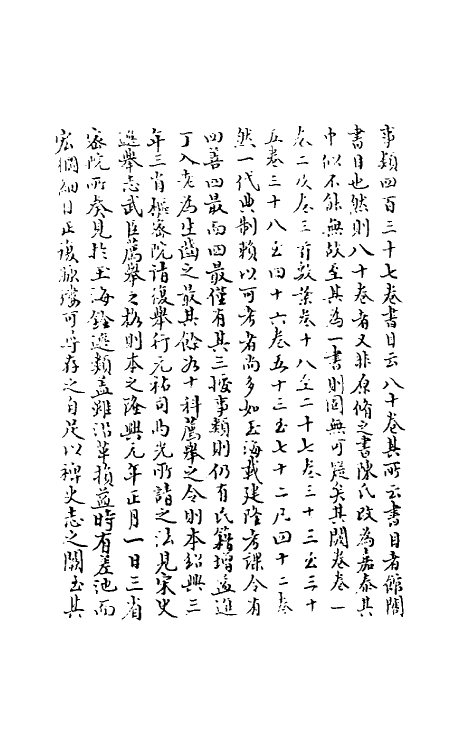 事類四百三十七卷書目云八十卷其所云書目者館閣
書目也然則八十卷者又非原脩之書陳氏改為嘉泰其
中似不能無故至其為一書則固無可疑矣其闕卷卷一
卷二及卷三首數葉卷十八至二十七卷三十三至三十
五卷三十八至四十六卷五十三至七十二凡四十二卷
然一代典制賴以可考者尚多如玉海載建隆考課令有
四善四最而四最僅有其三據事類則仍有民籍增益進
丁入老為生齒之最其餘如十科薦舉之令則本紹興三
年三省樞密院請復舉行元祐司馬光所請之法見宋史
選舉志武臣薦舉之格則本之隆興元年正月一日三省
密院所奏見於玉海銓選類蓋雖沿革損益時有差池而
宏綱細目正復臚縷可尋存之自足以裨史志之闕至其